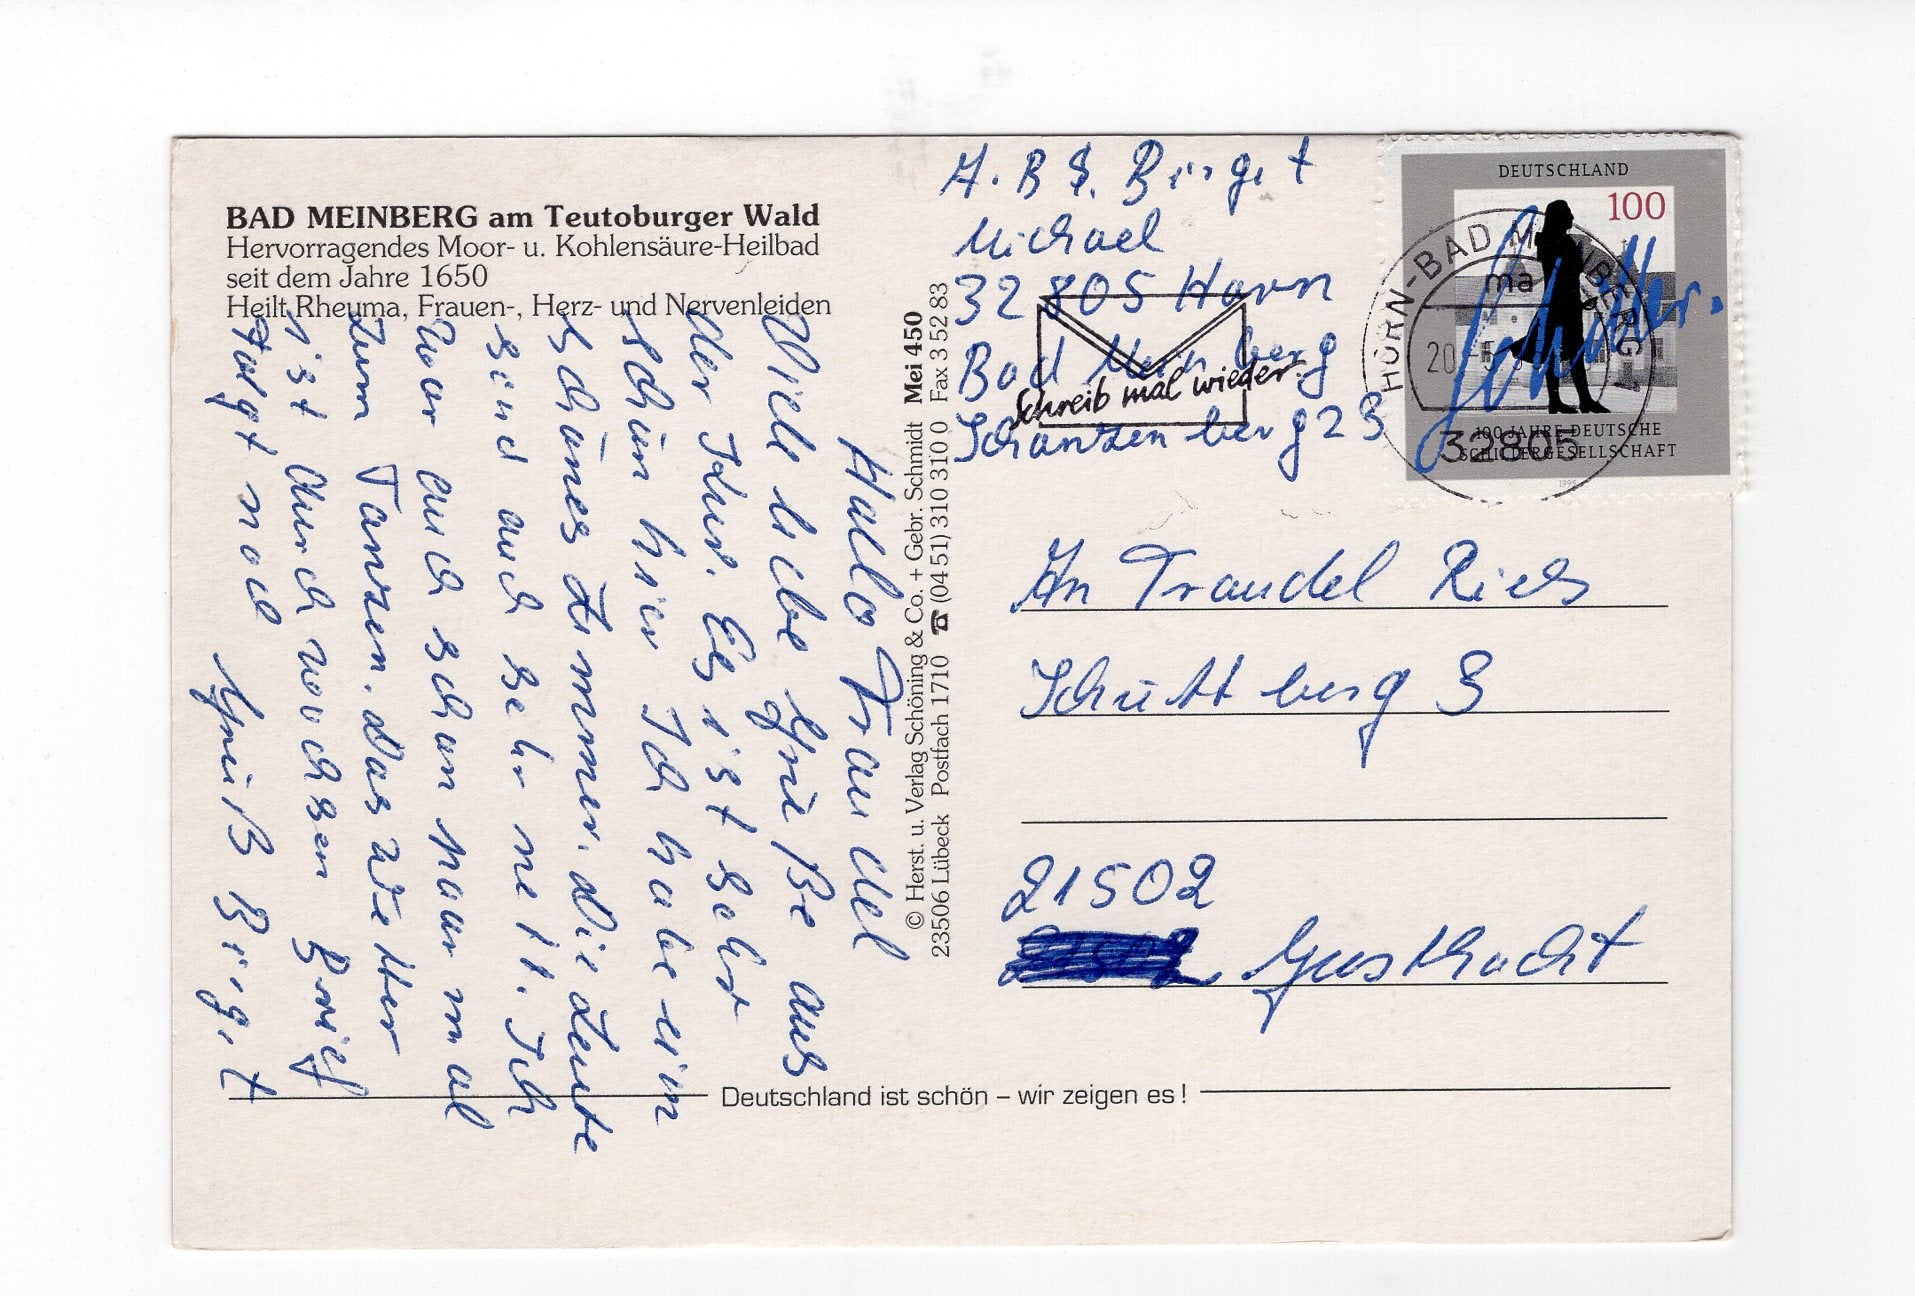 BAD MEINBERG am Teutoburger Wald
Hervorragendes Moor- u. Kohlensäure-Heilbad
seit dem Jahre 1650
Heilt Rheuma, Frauen-, Herz- und Nervenleiden
Hallo Traudel
Viele liebe Grüße aus
der Kur. Es ist sehr
schön hier Ich habe ein
schönes Zimmer. Die Leute
sind auch sehr nett. Ich
war auch schon paar mal
zum Tanzen. Das Wetter
ist durchwachsen Brief
folgt noch
Gruß Birgit
© Herst. u. Verlag Schöning & Co. + Gebr. Schmidt Mei 450
23506 Lübeck Postfach 1710 ☎ (04 51) 310 310 0 Fax 3 52 83
A. B S. Birgit
Michael
32805 Horn
Bad Meinberg
Schanzenberg 23
Schreib mal wieder
DEUTSCHLAND
100
Schiller.
100 JAHRE DEUTSCHE
SCHILLERGESELLSCHAFT
1995
HORN-BAD MEINBERG 1
ma
20.-5.
32805
An Traudel Riels
Schüttberg 3
21502
Geesthacht
Deutschland ist schön – wir zeigen es !